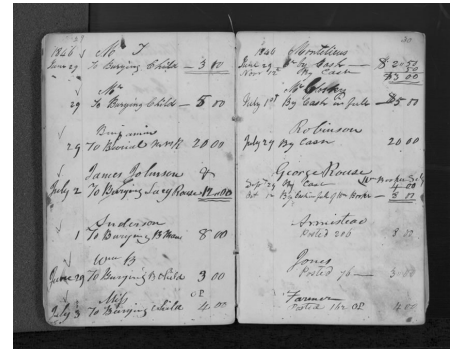 1846 Mr T
June 29 To Burying Child — 3 00
Mr
29 To Burying Child — 5 00
Benjamin
29 To Burial Work 20 00
James Johnson &
July 2 To Burying Lucy Rouse 12.00
Anderson
1 To Burying B Man 8 00
Wm B
June 29 To Burying B Child 3 00
Miss
July 3 To Burying Child 4 00
30
1846 Montelius
June 29 By Cash — $ 2.50
Nov By Cash 50
$3 00
Mr
July 1st By Cash in full — $5 00
Robinson
July 29 By Cash 20 00
George Rouse
Sept 29 By Cash 4 00
By Cash in full of Wm Hooker — 8 00
Armistead
Posted 206 8 00
Jones
Posted 76 — 3 00
Farmer
Posted 162 OL 4 00